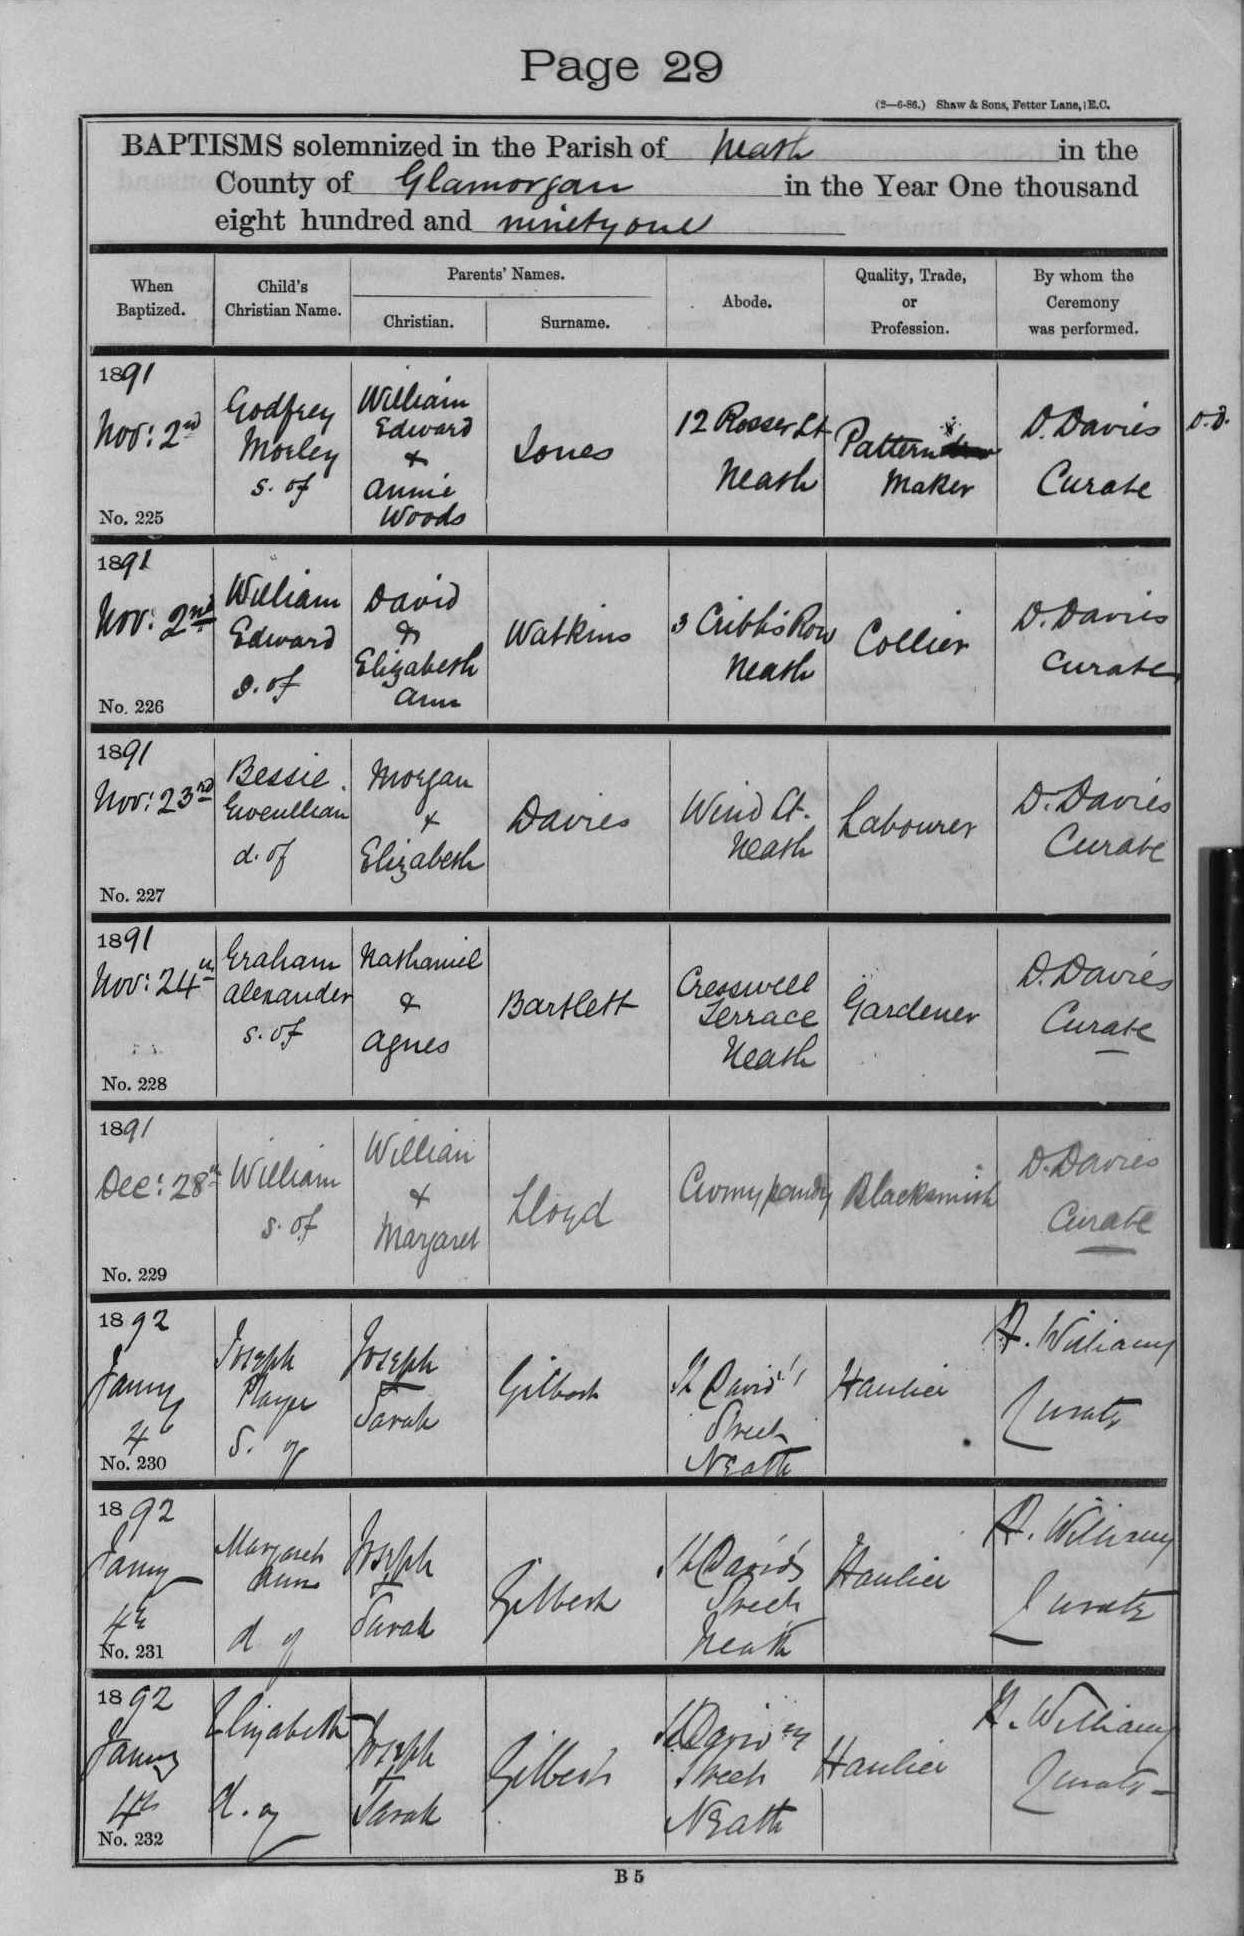 Page 29
(2—6-86.) Shaw & Sons, Fetter Lane, E.C.
BAPTISMS solemnized in the Parish of Neath in the
County of Glamorgan in the Year One thousand
eight hundred and ninety one
When Baptized.
Child's Christian Name.
Parents' Names.
Christian.
Surname.
Abode.
Quality, Trade, or Profession.
By whom the Ceremony was performed.
1891
Nov: 2nd
No. 225
Godfrey
Morley
s. of
William
Edward
&
Annie
Woods
Jones
12 Rosser St
Neath
Pattern
Maker
D. Davies
Curate
D.D.
1891
Nov: 2nd
No. 226
William
Edward
s. of
David
&
Elizabeth
Ann
Watkins
3 Cribb's Row
Neath
Collier
D. Davies
Curate
1891
Nov: 23rd
No. 227
Bessie
Gwenllian
d. of
Morgan
&
Elizabeth
Davies
Wind St.
Neath
Labourer
D. Davies
Curate
1891
Nov: 24th
No. 228
Graham
Alexander
s. of
Nathaniel
&
Agnes
Bartlett
Cresswell
Terrace
Neath
Gardener
D. Davies
Curate
1891
Dec: 28th
No. 229
William
s. of
William
&
Margaret
Lloyd
Cwmypandy
Blacksmith
D. Davies
Curate
1892
Janny
4
No. 230
Joseph
Player
S. of
Joseph
Sarah
Gilbert
St David's
Street
Neath
Haulier
Williams
Curate
1892
Janny
4th
No. 231
Margaret
Ann
d of
Joseph
&
Sarah
Gilbert
St David's
Street
Neath
Haulier
Williams
Curate
1892
Janny
4th
No. 232
Elizabeth
d. of
Joseph
&
Sarah
Gilbert
St David's
Street
Neath
Haulier
Williams
Curate
B 5